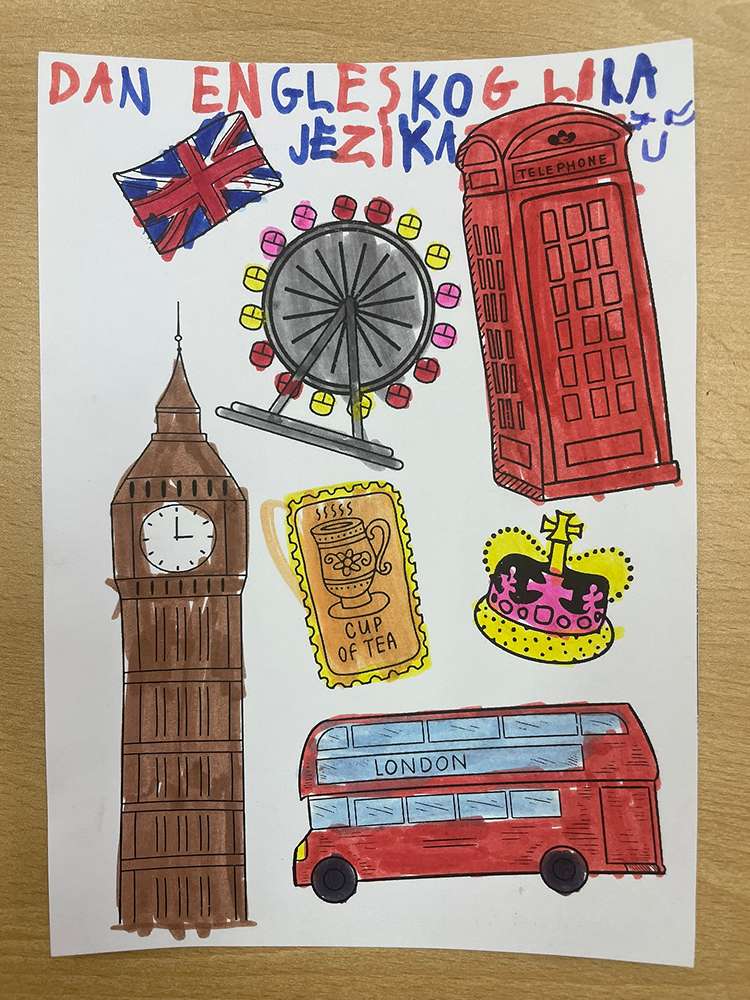 DAN ENGLESKOG
JEZIKA
TELEPHONE
CUP
OF TEA
LONDON